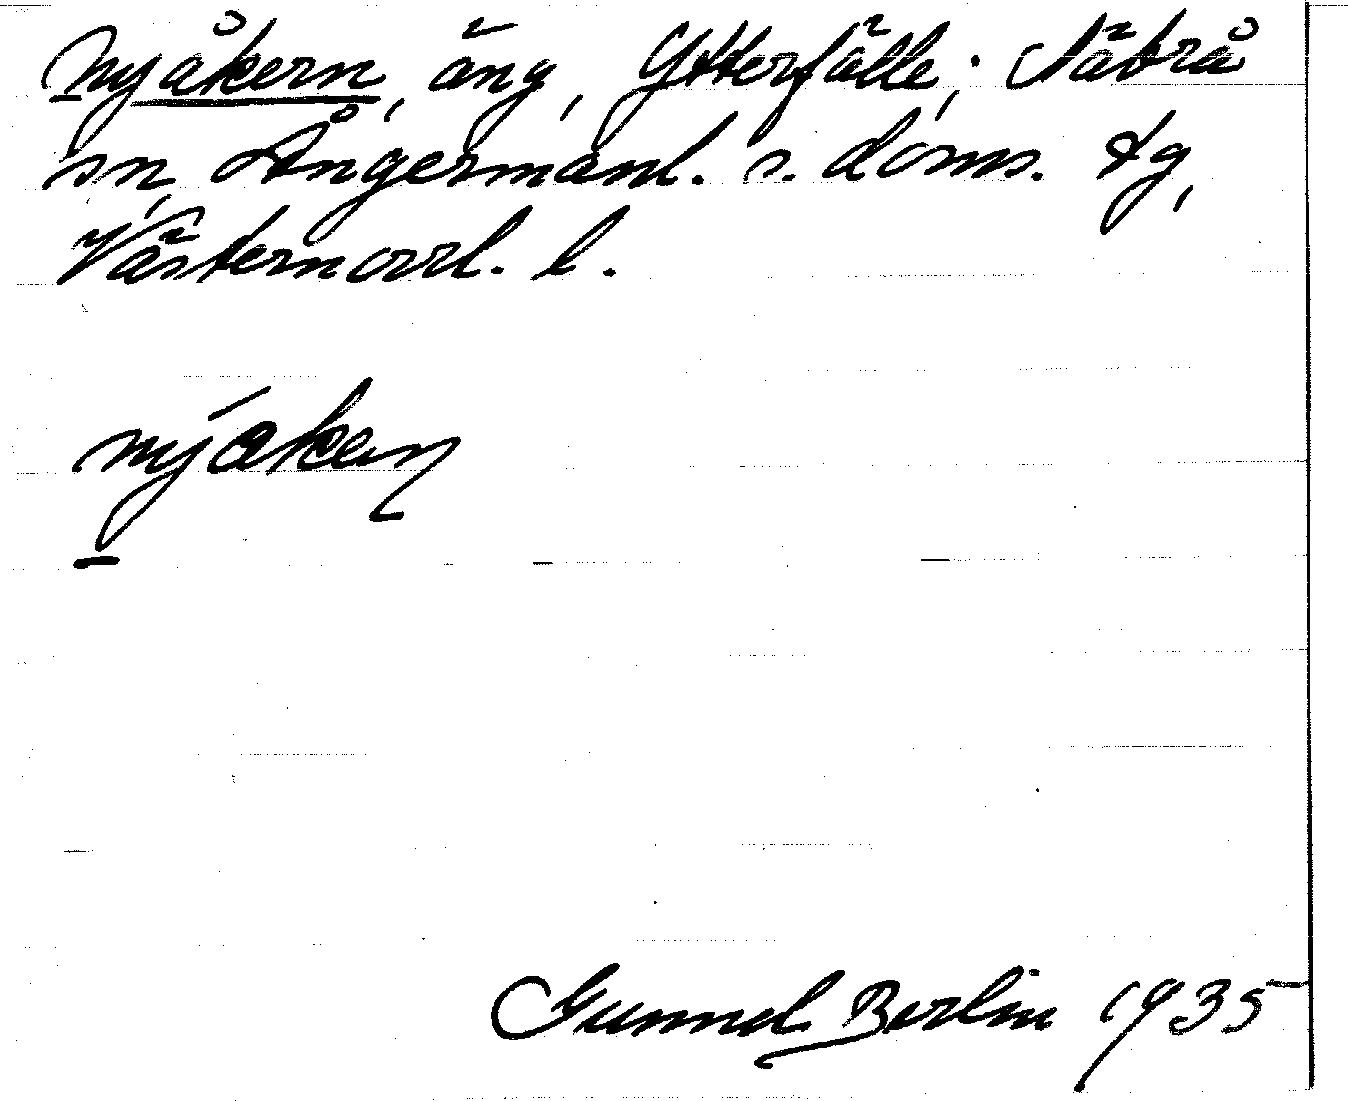 Nyåkern, äng, Ytterfälle, Näbrå
sn, Ångermanl. s. doms. tg,
Västernorrl. l.
nýaken
Gunnel Berlin 1935